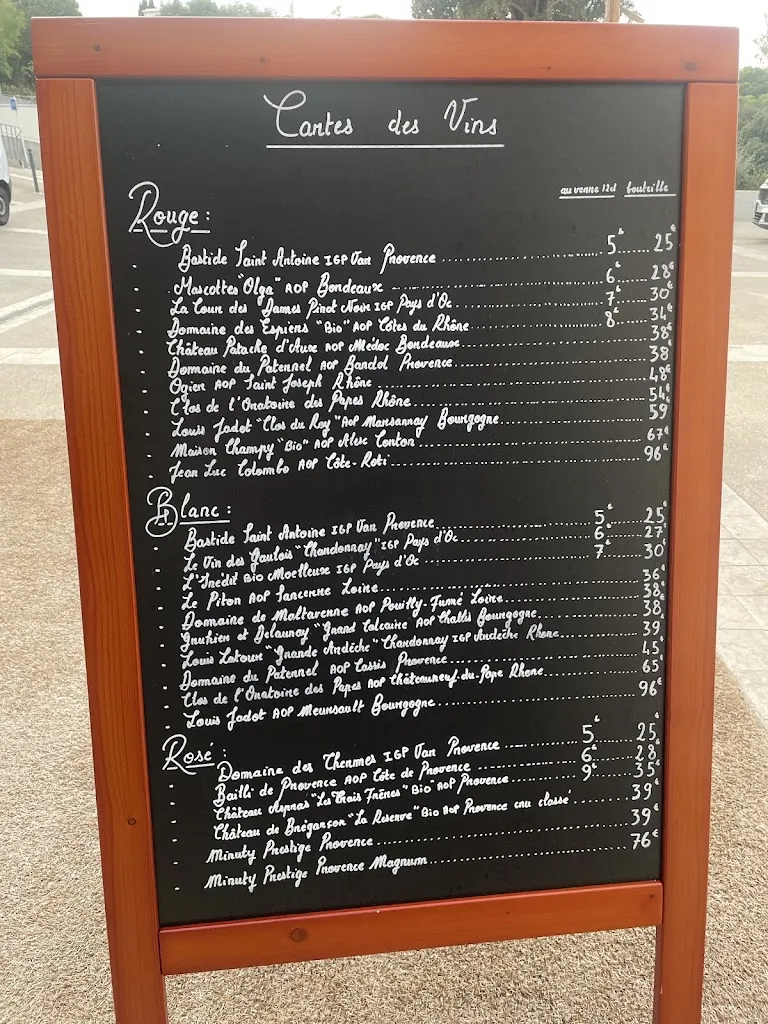 Cartes des Vins
au verre 12cl bouteille
Rouge :
- Bastide Saint Antoine IGP Var Provence 5€ 25€
- Mascottes "Olga" AOP Bordeaux 6€ 28€
- La Cour des Dames Pinot Noir IGP Pays d'Oc 7€ 30€
- Domaine des Espiers "Bio" AOP Côtes du Rhône 8€ 34€
- Château Patache d'Aux AOP Médoc Bordeaux 38€
- Domaine du Paternel AOP Bandol Provence 38€
- Ogier AOP Saint Joseph Rhône 48€
- Clos de l'Oratoire des Papes Rhône 54€
- Louis Jadot "Clos du Roy" AOP Marsannay Bourgogne 59
- Maison Champy "Bio" AOP Alexe Corton 67€
- Jean Luc Colombo AOP Côte-Roti 96€
Blanc :
- Bastide Saint Antoine IGP Var Provence 5€ 25€
- Le Vin des Gaulois "Chardonnay" IGP Pays d'Oc 6€ 27€
- L'Inédit Bio Moelleux IGP Pays d'Oc 7€ 30€
- Le Piton AOP Sancerre Loire 36€
- Domaine de Maltaverne AOP Pouilly-Fumé Loire 38€
- Gruhier et Delaunay "Grand Calcaire" AOP Chablis Bourgogne 38€
- Louis Latour "Grande Ardèche" Chardonnay IGP Ardèche Rhone 39€
- Domaine du Paternel AOP Cassis Provence 45€
- Clos de l'Oratoire des Papes AOP Châteauneuf-du-Pape Rhone 65€
- Louis Jadot AOP Meursault Bourgogne 96€
Rosé :
- Domaine des Thermes IGP Var Provence 5€ 25€
- Bailli de Provence AOP Côte de Provence 6€ 28€
- Château Aspras "Les Trois Frères" Bio AOP Provence 9€ 35€
- Château de Brégançon "La Réserve" Bio AOP Provence cru classé 39€
- Minuty Prestige Provence 39€
- Minuty Prestige Provence Magnum 76€